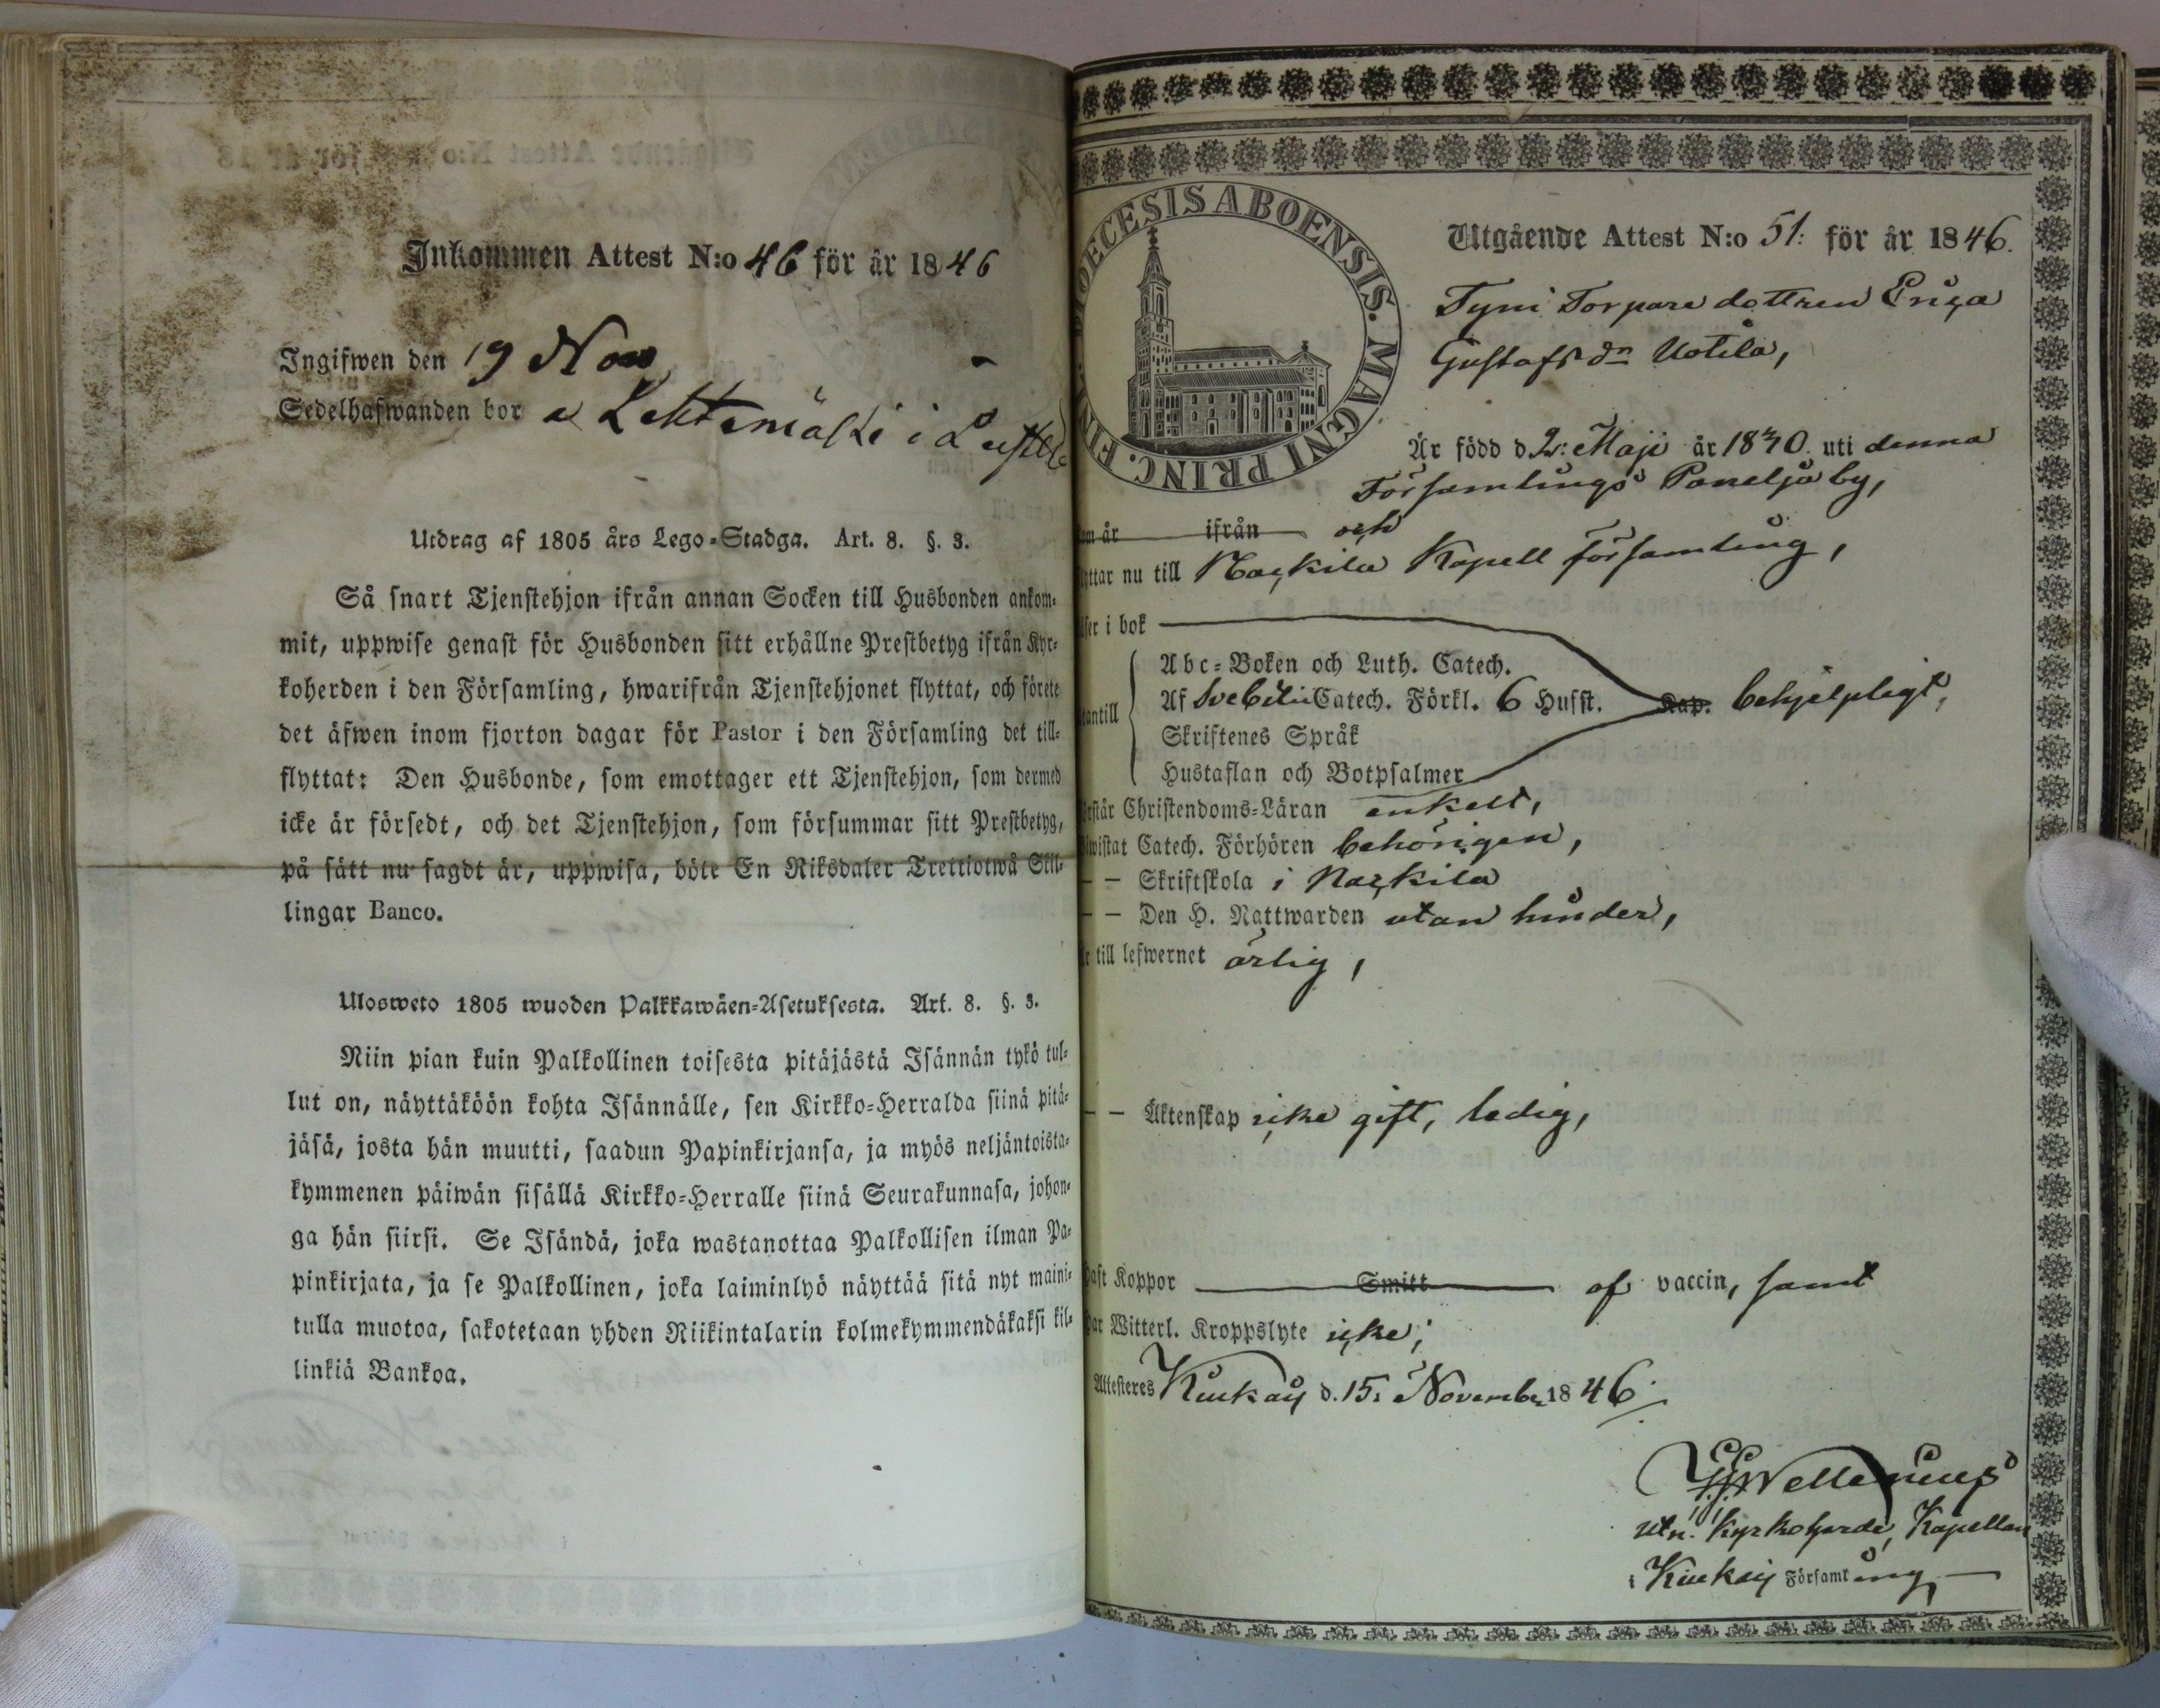 Inkommen Attest N:o 46 för år 1846
Ingifwen den 19 Nov
Sedelhafwanden bor
Utdrag af 1805 års Lego-Stadga. Art. 8. §. 3.
Så snart Tjenstehjon ifrån annan Socken till Husbonden ankom-
mit, uppwise genast för Husbonden sitt erhållne Prestbetyg ifrån Kyr-
koherden i den Församling, hwarifrån Tjenstehjonet flyttat, och förete
det äfwen inom fjorton dagar för Pastor i den Församling det till-
flyttat: Den Husbonde, som emottager ett Tjenstehjon, som dermed
icke är försedt, och det Tjenstehjon, som försummar sitt Prestbetyg,
på sätt nu sagdt är, uppwisa, böte En Riksdaler Trettiotwå Skil-
lingar Banco.
Ulosweto 1805 wuoden Palkkawäen-Asetuksesta. Art. 8. §. 3.
Niin pian kuin Palkollinen toisesta pitäjästä Isännän tykö tul-
lut on, näyttäköön kohta Isännälle, sen Kirkko-Herralda siinä pitä-
jäsä, josta hän muutti, saadun Papinkirjansa, ja myös neljäntoista-
kymmenen päiwän sisällä Kirkko-Herralle siinä Seurakunnasa, johon-
ga hän siirsi. Se Isändä, joka wastanottaa Palkollisen ilman Pa-
pinkirjata, ja se Palkollinen, joka laiminlyö näyttää sitä nyt maini-
tulla muotoa, sakotetaan yhden Riikintalarin kolmekymmendäkaksi kil-
linkiä Bankoa.
DIOECESIS ABOENSIS. MAGNI PRINC. FINL.
Utgående Attest N:o 51: för år 1846.
Tyni Torpare dottren Eriça
Gustafsdn Uotila,
Är född d 2: Maji år 1830. uti denna
Församlings Paneljä by,
om är ifrån och
yttar nu till Kapell församling,
ser i bok
Abc-Boken och Luth. Catech.
antill Af Svebilii Catech. Förkl. 6 Husst. Kap. behjelpligt,
Skriftenes Språk
Hustaflan och Botpsalmer
rstår Christendoms-Läran enkelt,
iwistat Catech. Förhören behörigen,
– – Skriftskola i
– – Den H. Nattwarden utan hinder,
r till lefwernet ärlig,
– – Äktenskap icke gift, ledig,
aft Koppor Smitt af vaccin, samt
ar Witterl. Kroppslyte icke;
Attesteres Kiukais d. 15: November 1846
utn. Kyrkoherde, Kapellan
i Kiukais Församling